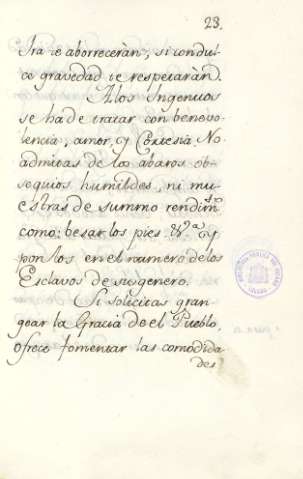 23.
Ira te aborreceràn, si con dul-
ce gravedad te respetaràn.
A los Ingenuos
se ha de tratar con benevo-
lencia, amor, y Cortesia. No
admitas de los abaros ob-
sequios humildes, ni mu-
estras de summo rendim.to
como: besar los pies &.a y
ponlos en el numero de los
Esclavos de su genero.
Si solicitas gran-
gear la Gracia de el Pueblo,
ofrece fomentar las comodida-
des